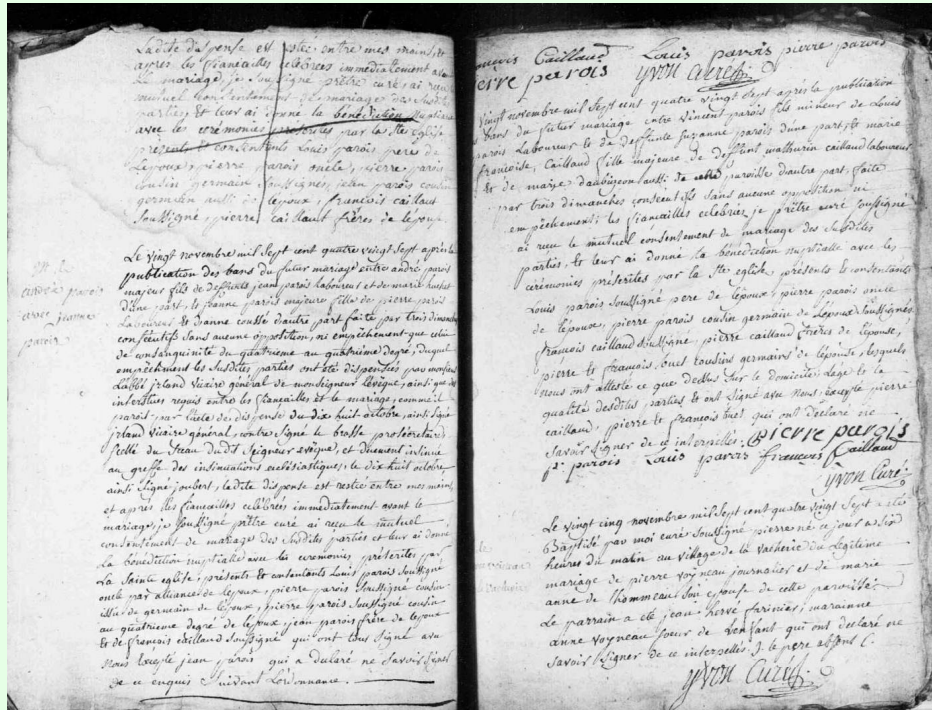 Ladite dispense est restée entre mes mains, et
après les fiançailles célébrées immédiatement avant
le mariage, je soussigné prêtre curé, ai reçu
mutuel consentement de mariage des susdites
parties, et leur ai donné la bénédiction nuptiale
avec les cérémonies préscrites par la Ste Eglise
présents et consentents Louis parois pere de
Lépoux, pierre parois oncle, pierre parois
cousin germain Soussignés, jean parois cousin
germain aussi de lépoux, francois caillaut
Soussigné, pierre caillaut frères de lépouse
M. de
andré parois
avec jeanne
parois
Le vingt novembre mil Sept cent quatre vingt Sept après la
publication des bans du futur mariage entre andré parois
majeur fils de deffunts jean parois laboureur et de marie
d'une part, et jeanne parois majeure fille de pierre parois
Laboureur et d'anne cousse d'autre part faite par trois dimanches
consécutifs sans aucune opposition, ni empêchement que celui
de consanguinité du quatrième au quatrième degré, duquel
empêchement les Susdites parties ont été dispensées par monsieur
L'abbé jrland vicaire général de monseigneur L'évêque, ainsi que des
interstices requis entre les fiançailles et le mariage, comme il
paroit par l'acte de dispense du dix huit octobre, ainsi signé
jrland vicaire général, contre Signé le brasse prosécretaire,
scellé du Sceau dudit Seigneur evêque, et duement insinué
au greffe des insinuations ecclésiastiques, le dix huit octobre
ainsi Signé joubert, ladite dispense est restée entre mes mains,
et après les fiançailles célébrées immédiatement avant le
mariage, je soussigné prêtre curé ai reçu le mutuel
consentement de mariage des Susdites parties et leur ai donné
La bénédiction nuptialle avec les cérémonies préscrites par
La Sainte eglise, présents et contentants Louis parois Soussigné
oncle par alliance de lépoux, pierre parois Soussigné cousin
issu de germain de lépoux, pierre parois Soussigné cousin
au quatrième degré de lépoux jean parois frère de lépoux
Et de françois caillaud Soussigné qui ont tous signé avec
Nous Excepté jean parois qui a declaré ne Savoir Signer
de ce enquis Suivant L'ordonnance.
françois Caillaud Louis parois pierre parois
pierre parois yvon curé
Vingt novembre mil Sept cent quatre vingt Sept après la publication
bans du futur mariage entre vincent parois fils mineur de Louis
parois Laboureur et de deffunte Suzanne parois d'une part, et marie
françoise, Caillaud fille majeure de deffunt mathurin caillaud laboureur
Et de marie daubizeon aussi de cette paroisse d'autre part, faite
par trois dimanches consecutifs Sans aucune opposition ni
empêchement: les fiançailles célébrées je prêtre curé Soussigné
ai reçu le mutuel consentement de mariage des Susdites
parties, et leur ai donné la bénédiction nuptialle avec les
cérémonies préscrites par la Ste eglise, présents et consentants
Louis parois Soussigné pere de lépoux, pierre parois oncle
de lépoux, pierre parois cousin germain de Lépoux Soussignés
françois caillaud Soussigné, pierre caillaud frères de lépouse,
pierre et françois buet cousins germains de lépouse, lesquels
nous ont attesté ce que dessus Sur le domicile, L'age et la
qualité desdites parties et ont Signé avec Nous, excepté pierre
caillaud, pierre et françois buet qui ont déclaré ne
Savoir Signer de ce interpellés. pierre parois
pr parois Louis parois françois Caillaud
yvon Curé
Le vingt cinq novembre mil Sept cent quatre vingt Sept a été
Baptisé par moi curé Soussigné pierre né ce jour a Six
heures du matin au village de la vacherie du Legitime
mariage de pierre voyneau journalier et de marie
anne de L'hommeau Son epouse de cette paroisse.
Le parrain a été jean hervé farinier, marainne
anne voyneau Soeur de L'enfant qui ont declaré ne
Savoir Signer de ce interpellés. le pere absent
yvon Curé